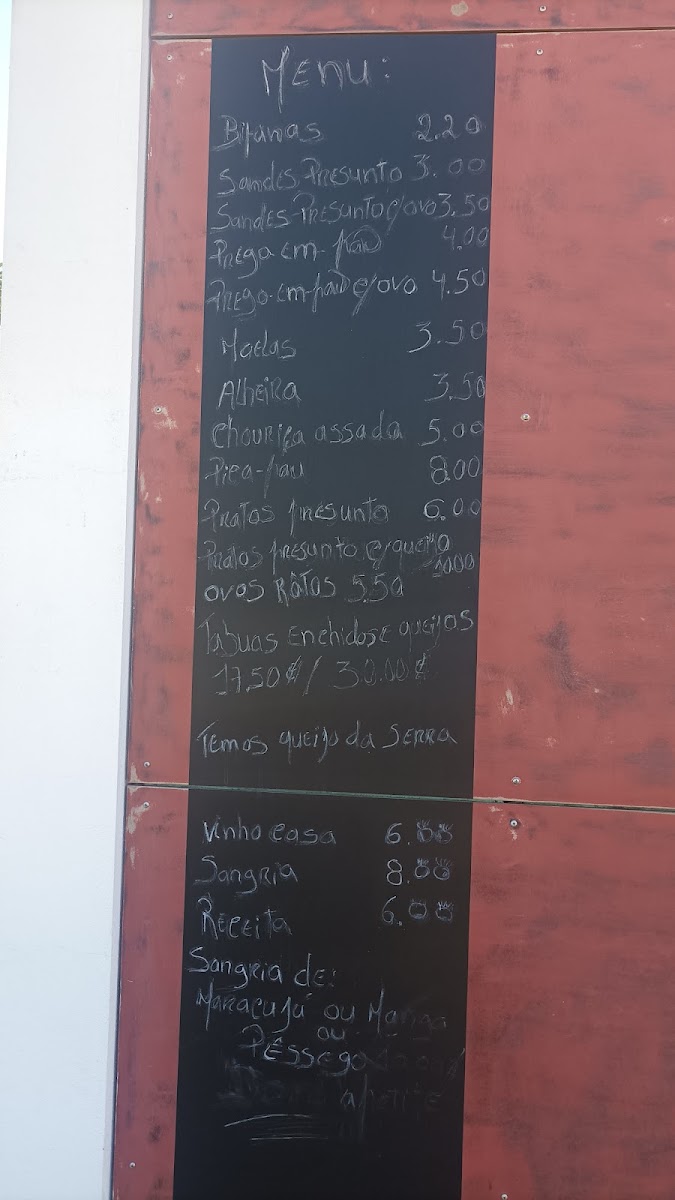 Menu:
Bifanas 2.20
Sandes-Presunto 3.00
Sandes-Presunto c/ovo 3.50
Prego-em-pão 4.00
Prego-em-pão c/ovo 4.50
Moelas 3.50
Alheira 3.50
Chouriça assada 5.00
Pica-pau 8.00
Pratos presunto 6.00
Pratos presunto c/queijo 10.00
ovos Rôtos 5.50
Tabuas Enchidos e queijos
17.50€/ 30.00€
Temos queijo da SERRA
Vinho casa 6.00
Sangria 8.00
Receita 6.00
Sangria de:
Maracujá ou Manga
ou
Pêssego
apetite